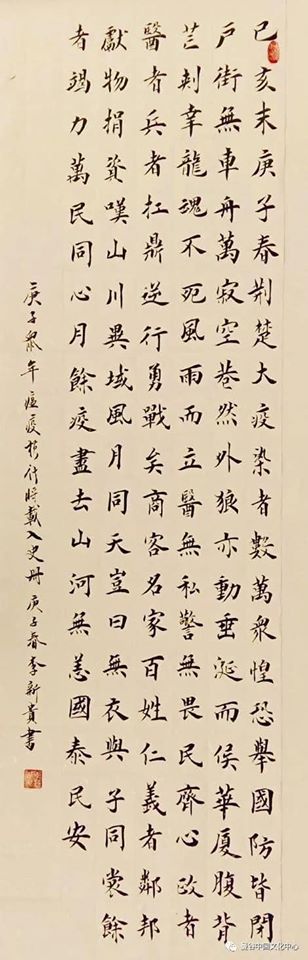 己亥末庚子春荆楚大疫染者數萬眾惶恐舉國防皆閉
戶街無車舟萬寂空巷然外狼亦動垂涎而侯華厦腹背
芒刺幸龍魂不死風雨而立醫無私警無畏民齊心政者
醫者兵者扛鼎逆行勇戰矣商客名家百姓仁義者鄰邦
獻物捐資嘆山川異域風月同天豈曰無衣與子同裳餘
者竭力萬民同心月餘疫盡去山河無恙國泰民安
庚子鼠年瘟疫於付時載入史冊 庚子春李新貴書
曼谷中国文化中心